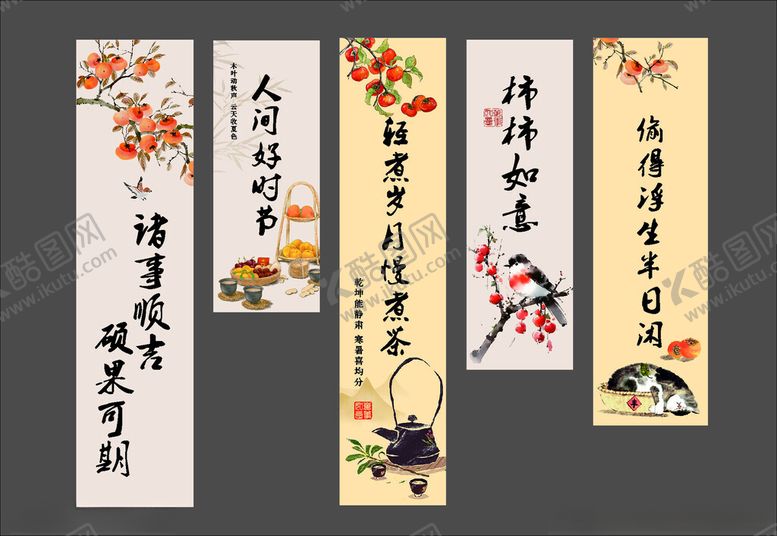 诸事顺吉
硕果可期
木叶动秋声 云天收夏色
人间好时节
轻煮岁月慢煮茶
乾坤能静肃 寒暑喜均分
柿柿如意
偷得浮生半日闲
酷图网
www.ikutu.com